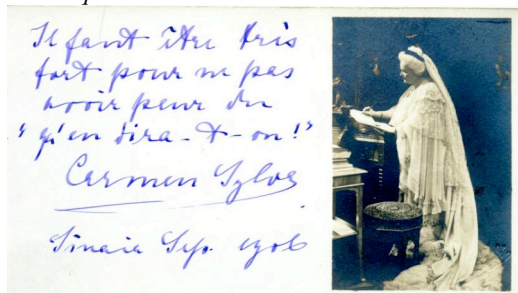 Il faut être très
fort pour ne pas
avoir peur du
"qu'en dira-t-on!"
Carmen Sylva
Sinaia Sep. 1906